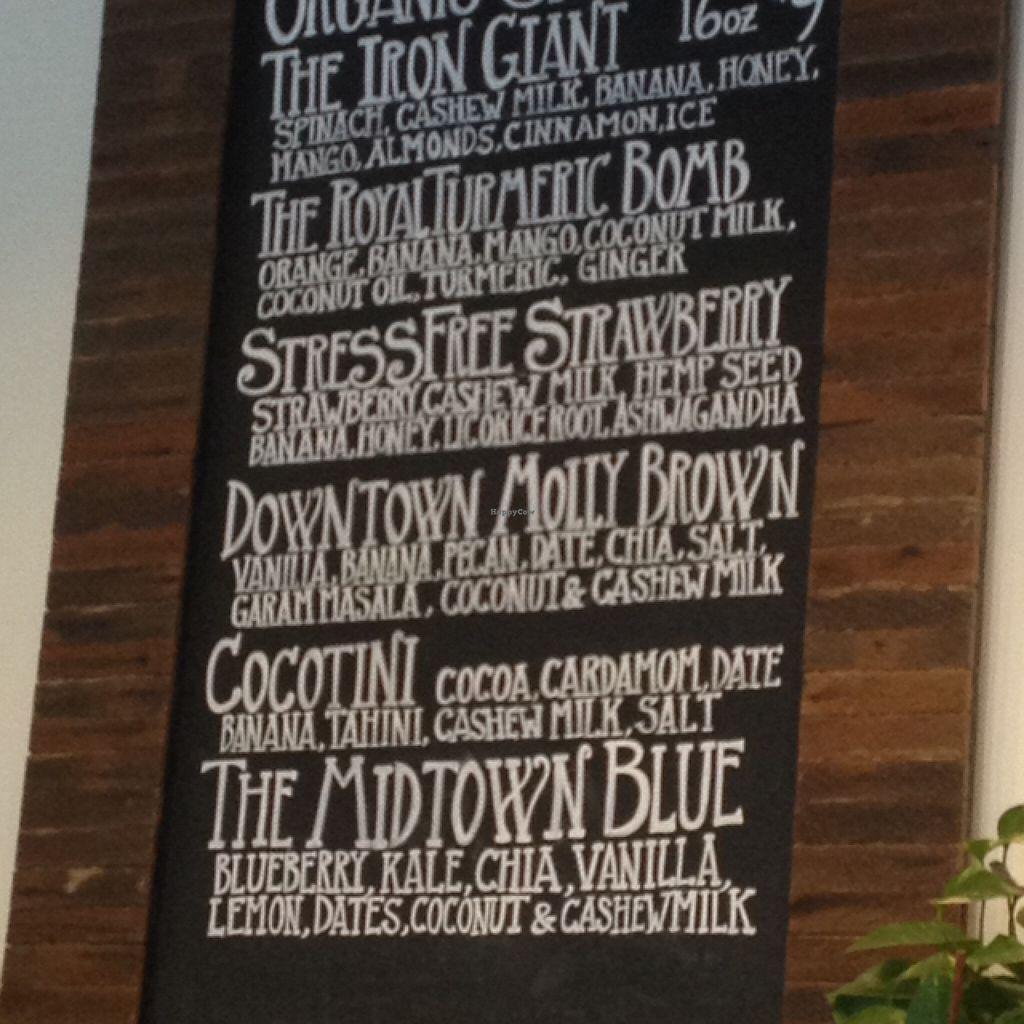 ORGANIC
THE IRON GIANT 16oz 9
SPINACH, CASHEW MILK, BANANA, HONEY,
MANGO, ALMONDS, CINNAMON, ICE
THE ROYAL TURMERIC BOMB
ORANGE, BANANA, MANGO, COCONUT MILK,
COCONUT OIL, TURMERIC, GINGER
STRESS FREE STRAWBERRY
STRAWBERRY, CASHEW MILK, HEMP SEED
BANANA, HONEY, LICORICE ROOT, ASHWAGANDHA
DOWNTOWN MOLLY BROWN
VANILLA, BANANA, PECAN, DATE, CHIA, SALT,
GARAM MASALA, COCONUT & CASHEW MILK
COCOTINI COCOA, CARDAMOM, DATE
BANANA, TAHINI, CASHEW MILK, SALT
THE MIDTOWN BLUE
BLUEBERRY, KALE, CHIA, VANILLA,
LEMON, DATES, COCONUT & CASHEW MILK
HappyCow